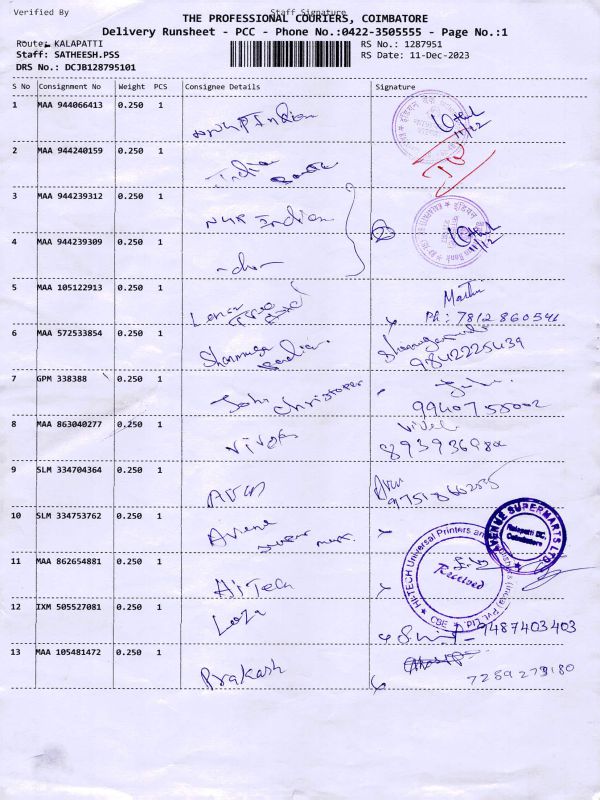 Verified By
Staff Signature
THE PROFESSIONAL COURIERS, COIMBATORE
Delivery Runsheet - PCC - Phone No.:0422-3505555 - Page No.:1
Route: KALAPATTI
RS No.: 1287951
Staff: SATHEESH.PSS
RS Date: 11-Dec-2023
DRS No.: DCJB128795101
S No Consignment No Weight PCS Consignee Details Signature
1 MAA 944066413 0.250 1 Indian
11/12
2 MAA 944240159 0.250 1 India
3 MAA 944239312 0.250 1 Indian
11/12
4 MAA 944239309 0.250 1 -do-
5 MAA 105122913 0.250 1
Ph: 7812860541
6 MAA 572533854 0.250 1 Shanmuga
9842225439
7 GPM 338388 0.250 1 John Christopher
9940758002
8 MAA 863040277 0.250 1 Vivek
9 SLM 334704364 0.250 1 Arun
Arun
10 SLM 334753762 0.250 1
AVENUE SUPERMARTS LTD.
Kalapatti DC,
Coimbatore
11 MAA 862654881 0.250 1 Hi Tech
HI-TECH Universal Printers and
Pvt. Ltd. CBE
Received
12 IXM 505527081 0.250 1
9487403403
13 MAA 105481472 0.250 1 Prakash
7289279180